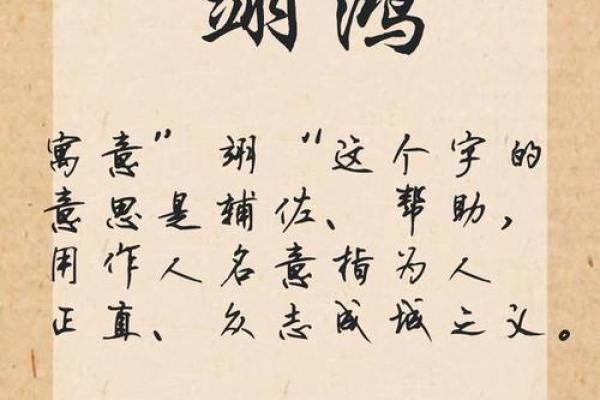 翊鸿
寓意”翊“这个字的
意思是辅佐、帮助，
用作人名意指为人
正直、众志成城之义。